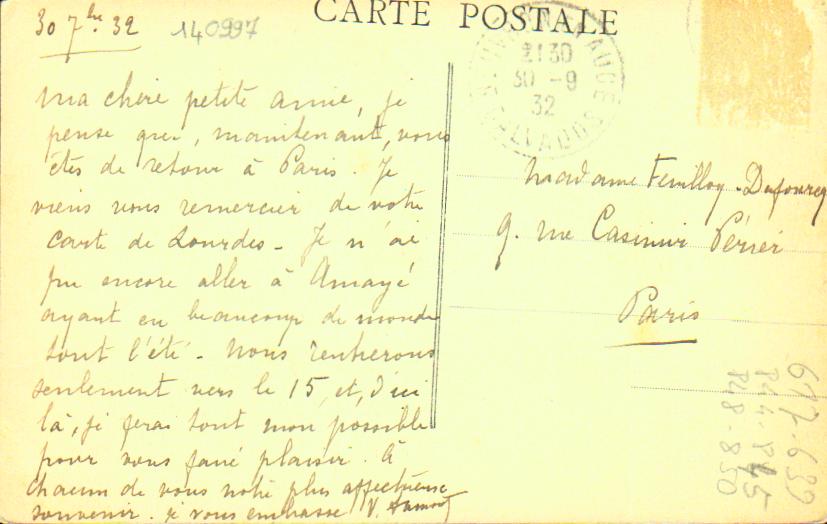 30 7bre 32
140997
CARTE POSTALE
21 30
30 - 9
32
CALVADOS
Ma chère petite amie, je
pense que, maintenant, vous
êtes de retour à Paris. Je
viens vous remercier de votre
carte de Lourdes - Je n'ai
pu encore aller à Amayé
ayant eu beaucoup de monde
tout l'été - Nous rentrerons
seulement vers le 15, et, d'ici
là, je ferai tout mon possible
pour vous faire plaisir. À
chacun de vous notre plus affectueux
souvenir. je vous embrasse V.
Madame Feuilloy-Dufourcq
9. rue Casimir Périer
Paris
677-639
P44-825
P48-850